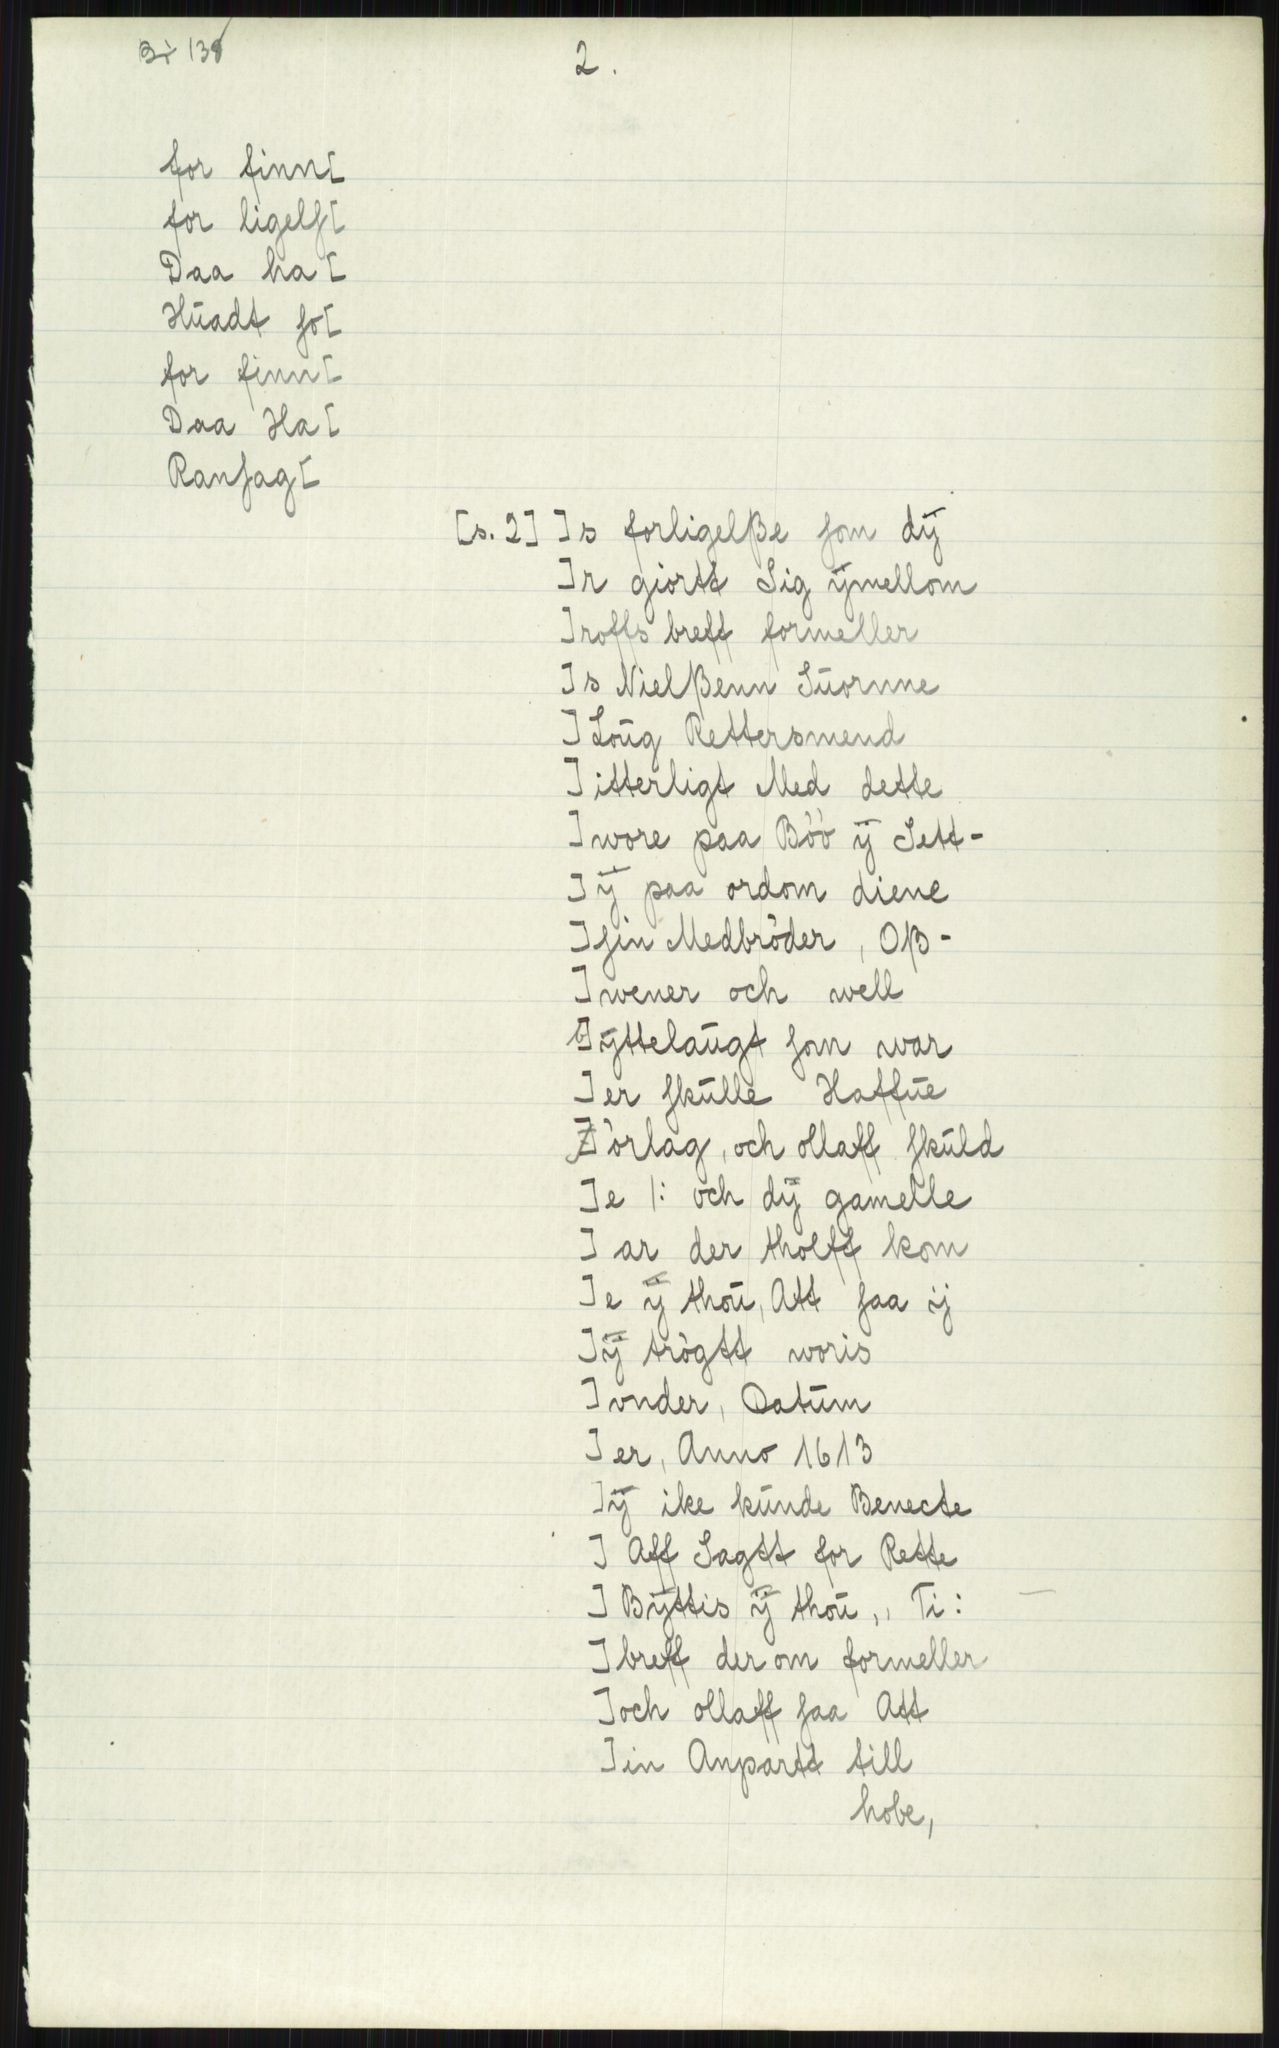 Bx 138
2.
for finn[
for ligelſ[
Daa ha[
Hūadt ſo[
for finn[
Daa Ha[
Ranſag[
[s. 2] ]s forligelße ſom dÿ
]r giortt Sig ÿmellom
]roffs breff formeller
]s Nielßenn Sūornne
]Loūg Rettersmend
]itterligt Med dette
]wore paa Böö ÿ Sett-
]ÿ paa ordom diene
]ſin Medbröder, Oß-
]wener och well
]ÿttelaūgt ſom war
]er ſkūlle Haffūe
]örlag, och ollaff ſkūld
]e /: och dÿ gamelle
]ar der tholff kom
]e ÿ thoū, Att ſaa ij
]ÿ trögtt woris
]vnder, Datūm
]er, Anno 1613
]ÿ ike kūnde Benecte
]Aff Sagtt for Rette
]Bÿttis ÿ thoū,, Ti:
]breff der om formeller
]och ollaff ſaa Att
]in Anpartt till
hobe,